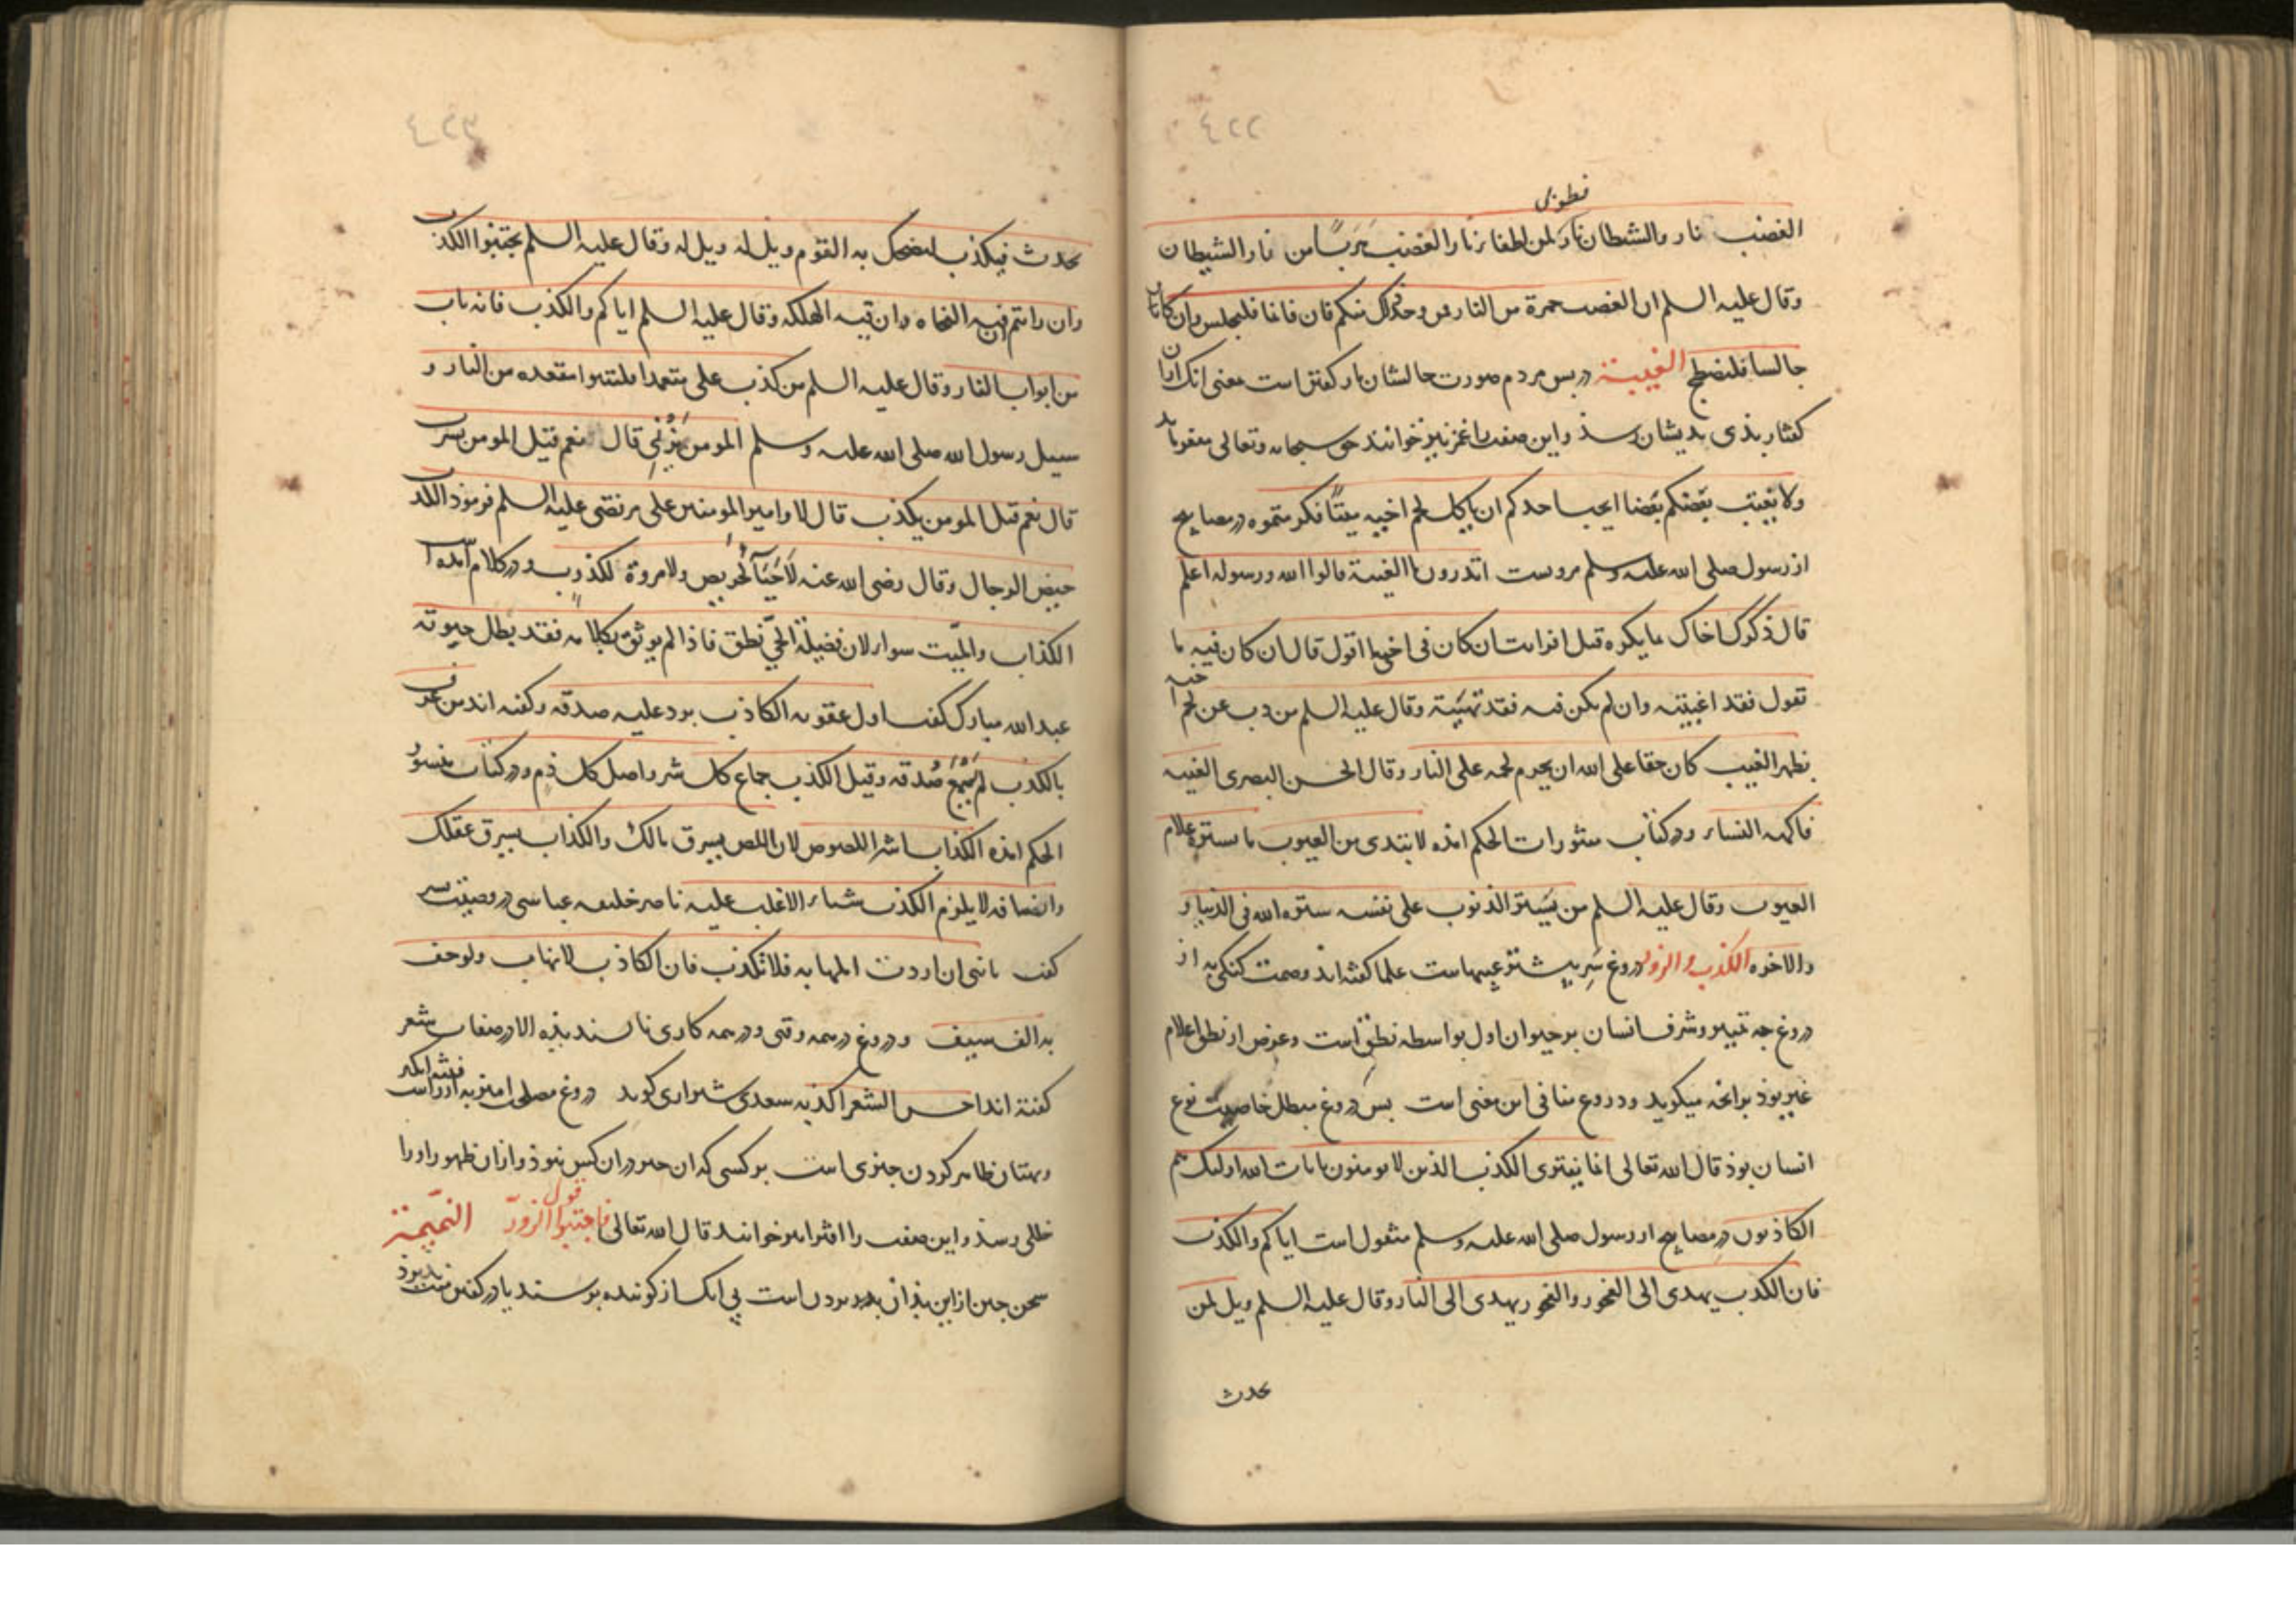 فطوبی
الغضب نار والشیطان نار لمن اطفا نار الغضب هربا من نار الشیطان
وقال علیه السلم ان الغضب جمرة من النار فمن وجد ذلک منکم فان قائما فلیجلس وان کان
جالسا فلیضطجع الغیبة در پس مردم صورت حالشان باز گفتن است معنی انک از ان
کفتار بذی بدیشان رسذ واین صفت را غمز نیز خوانند حق سبحانه وتعالی میفرماید
ولا یغتب بعضکم بعضا ایحب احدکم ان یاکل لحم اخیه میتا فکرهتموه در مصابیح
از رسول صلی الله علیه وسلم مرویست اتدرون ما الغیبة قالوا الله ورسوله اعلم
قال ذکرک اخاک بما یکره قیل افرایت ان کان فی اخی ما اقول قال ان کان فیه ما
تقول فقد اغتبته وان لم یکن فیه فقد بهتته وقال علیه السلم من ذب عن لحم اخیه
بظهر الغیب کان حقا علی الله ان یحرم لحمه علی النار وقال الحسن البصری الغیبه
فاکهة النساء ودر کتاب منثورات الحکم امذه لا تبتدی من العیوب ما ستره علام
العیوب وقال علیه السلم من یستر الذنوب علی نفسه ستره الله فی الدنیا و
والاخره الکذب والزور دروغ شریست عیبهاست علما کفته اند وصمت کنکی به از
دروغ جه تمییز وشرف انسان بر حیوان اول بواسطه نطق است وغرض از نطق اعلام
غیر بوذ بر انجه میکوید ودروغ منافی این معنی است بس دروغ مبطل خاصیت نوع
انسان بوذ قال الله تعالی انما یفتری الکذب الذین لا یومنون بایات الله اولیک هم
الکاذبون در مصابیح از رسول صلی الله علیه وسلم منقول است ایاکم والکذب
فان الکذب یهدی الی الفجور والفجور یهدی الی النار وقال علیه السلم ویل لمن
یحدث
یحدث فیکذب لیضحک به القوم ویل له ویل له وقال علیه السلم تجتنبوا الکذب
وان رایتم ان فیه النجاه وان فیه الهلکه وقال علیه السلم ایاکم والکذب فانه باب
من ابواب النفاق وقال علیه السلم من کذب علی متعمدا فلیتبوا مقعده من النار و
سیل رسول الله صلی الله علیه وسلم المومن یزنی قال نعم قیل المومن یسرق
قال نعم قیل المومن یکذب قال لا وامیر المومنین علی مرتضی علیه السلم فرموذ الکذب
حیض الرجال وقال رضی الله عنه لا حیاء لحریص ولا مروة لکذوب ودر کلام امده
الکذاب والمیت سواء لان فضیلة الحی نطق فاذا لم یوثق بکلامه فقد بطل حیوته
عبد الله مبارک کفت اول عقوبه الکاذب یرد علیه صدقه وکفته اند من عرف
بالکذب لم یسمع صدقه وقیل الکذب جماع کل شر واصل کل ذم ودر کتاب منثور
الحکم امذه الکذاب شر اللصوص لان اللص یسرق مالک والکذاب یسرق عقلک
وایضا فیه لا یلزم الکذب شیاء الا غلب علیه ناصر خلیفه عباسی در وصیت بسر
کفت یا بنی ان اردت المهابه فلا تکذب فان الکاذب لا یهاب ولو حف
به الف سیف ودروغ در همه وقتی ودر همه کاری نابسندیذه الا در صفات شعر
کفته اند احسن الشعر اکذبه سعدی شیرازی کوید دروغ مصلحت امیز به از راست فتنه انکیز
وبهتان ظاهر کردن جیزی است بر کسی که ان جیز در ان کس نبوذ واز ان ظهور او را
خللی رسذ واین صفت را افترا نیز خوانند قال الله تعالی فاجتنبوا قول الزور النمیمة
سخن جین از این بذان بردن است بی انک از کوینده برسند یا در کفتن